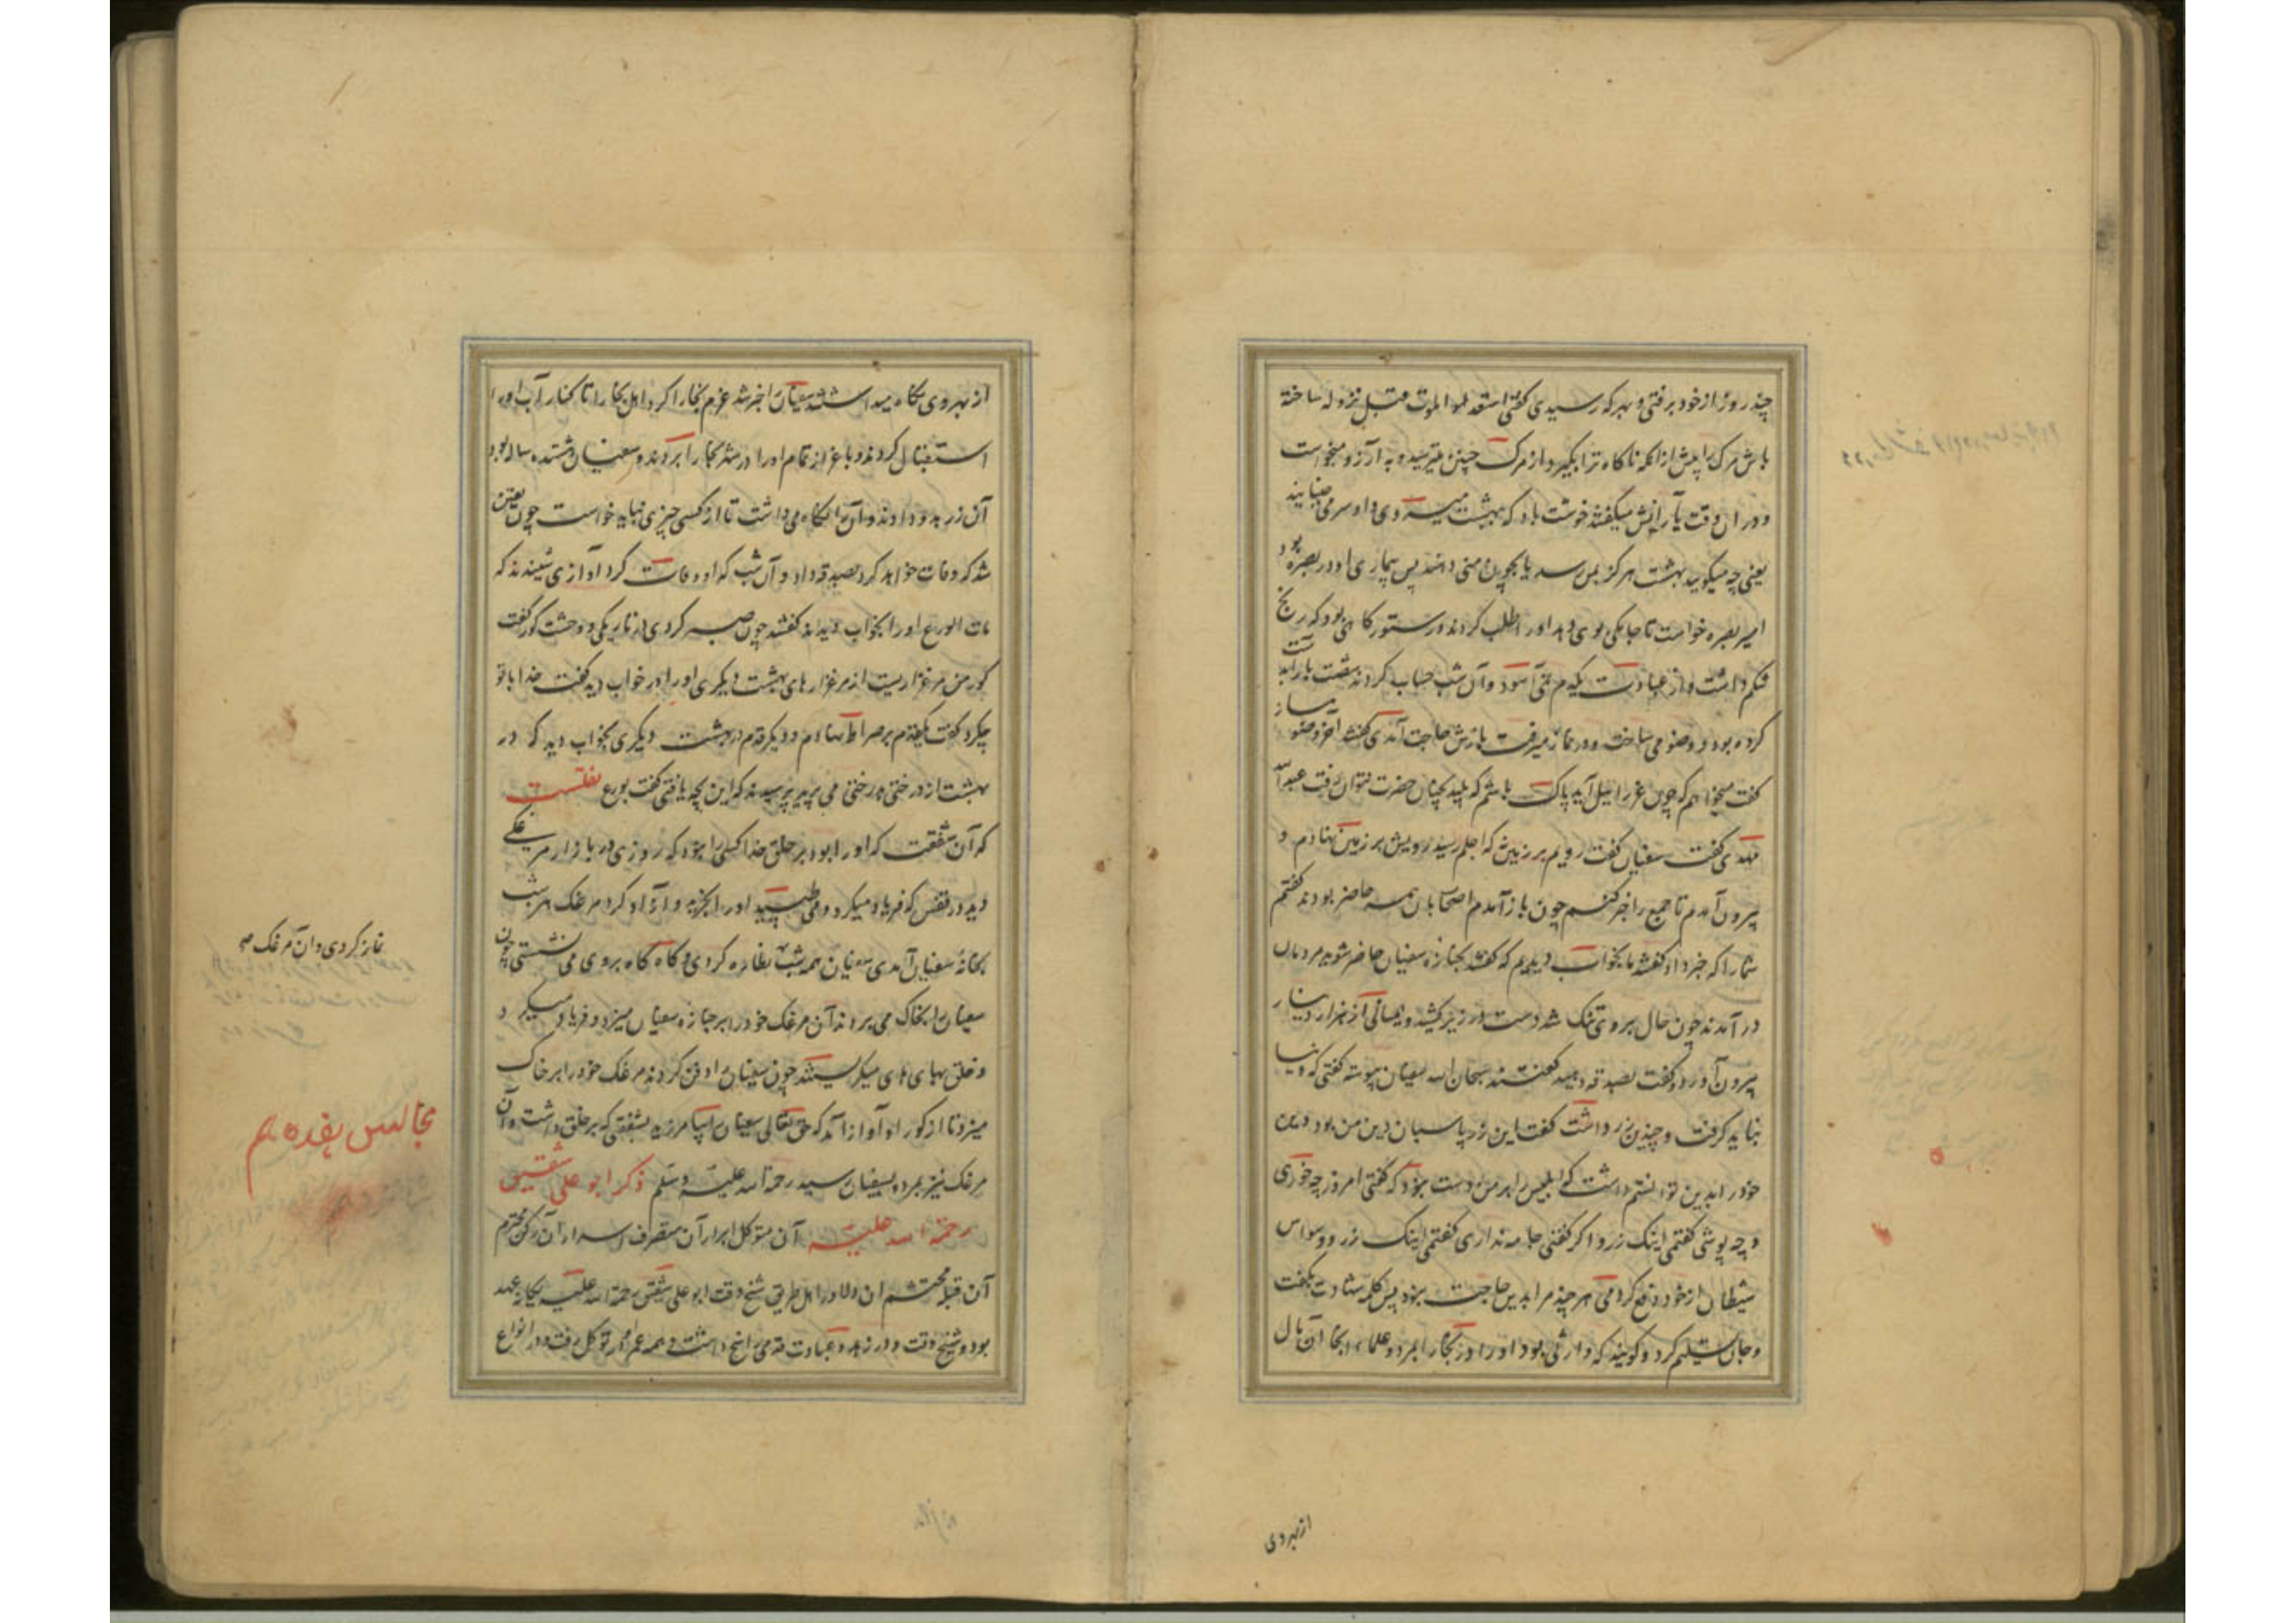 چند روز از خود برفتی و بهر که رسیدی گفتی استعد للموت قبل نزوله ساخته
باش مرگ را پیش از آنکه ناگاه ترا بگیرد از مرگ چنین میترسید و به آرزو میخواست
و در آن وقت یارانش میگفتند خوشت باد که ببهشت میروی و او سر می‌جنبانید
یعنی چه میگویید بهشت هرگز بمن رسد یا بچون منی دهند پس بیماری او در بصره بود
امیر بصره خواست تا جامگی بوی دهد او را طلب کردند در ستورگاهی بود که رنج
شکم داشت و از عبادت یکدم نمی‌آسود و آن شب حساب کردند شصت بار آب‌دست
کرده بود و وضو می ساخت و در نماز میرفت بازش حاجت آمدی گفتند آخر وضو مساز
گفت میخواهم که چون عزرائیل آید پاک باشم که پلید بچنان حضرت نتوان رفت عبدالله
مهدی گفت سفیان گفت رویم بر زمین نه که اجلم رسید رویش بر زمین نهادم و
بیرون آمدم تا جمع را خبر کنم چون باز آمدم اصحابان همه حاضر بودند گفتم
شما را که خبر داد گفتند ما بخواب دیدیم که گفتند بجنازه سفیان حاضر شوید مردمان
در آمدند چون حال بر وی تنگ شد دست در زیر کشید و همیانی از هزار دینار
بیرون آورد و گفت بصدقه دهید گفتند سبحان الله سفیان پیوسته گفتی که دنیا
نباید گرفت و چندین زر داشت گفت این زر پاسبان دین من بود و دین
خود را بدین توانستم داشت که ابلیس را بر من دست نبود که گفتی امروز چه خوری
و چه پوشی گفتمی اینک زر و اگر گفتی جامه نداری گفتمی اینک زر و وسواس
شیطان از خود دفع کردمی هر چند مرا بدین حاجت نبود پس کلمه شهادت بگفت
و جان تسلیم کرد و گویند که وارثی بود او را در بخارا بمرد و علماء آنجا آن مال
از بهر وی
از بهر وی نگاه میداشتند سفیان را خبر شد عزم بخارا کرد اهل بخارا تا کنار آب او را
استقبال کردند و باعزاز تمام او را در شهر بخارا بردند و سفیان هشتده ساله بود
آن زر بدو دادند و آن را نگاه می داشت تا از کسی چیزی نباید خواست چون یقین
شد که وفات خواهد کرد بصدقه داد و آن شب که او وفات کرد آوازی شنیدند که
مات الورع او را بخواب دیدند گفتند چون صبر کردی در تاریکی و وحشت گور گفت
گور من مرغزاریست از مرغزارهای بهشت دیگری او را در خواب دید گفت خدا با تو
چکرد گفت یکقدم بر صراط نهادم و دیگر قدم در بهشت دیگری بخواب دید که در
بهشت از درختی بدرختی می پرید پرسیدند که این بچه یافتی گفت بورع نقلست
که آن شفقت که او را بود بر خلق خدا کسی را نبود که روزی در بازار مرغکی
دید در قفس که فریاد میکرد و می طپید او را بخرید و آزاد کرد مرغک هر شب
بخانهٔ سفیان آمدی سفیان همه شب نماز کردی و آن مرغک نظاره کردی و گاه گاه بر وی می نشستی چون
سفیان را بخاک می بردند آن مرغک خود را بر جنازه سفیان میزد و فریاد میکرد
و خلق بهای های میگریستند چون سفیان را دفن کردند مرغک خود را بر خاک
میزد تا از گور او آواز آمد که حق تعالی سفیان را بیامرزید بشفقتی که بر خلق داشت و آن
مرغک نیز بمرد و بسفیان رسید رحمة الله علیه وسلم ذکر ابو علی شقیق
رحمة الله علیه آن متوکل ابرار آن متصرف اسرار آن رکن محترم
آن قبله محتشم آن دلاور اهل طریق شیخ وقت ابو علی شقیق رحمة الله علیه یگانه عهد
بود و شیخ وقت و در زهد و عبادت قدمی راسخ داشت و همه عمر در توکل رفت و در انواع
نماز کردی و آن مرغک صح
مجالس هفدهم